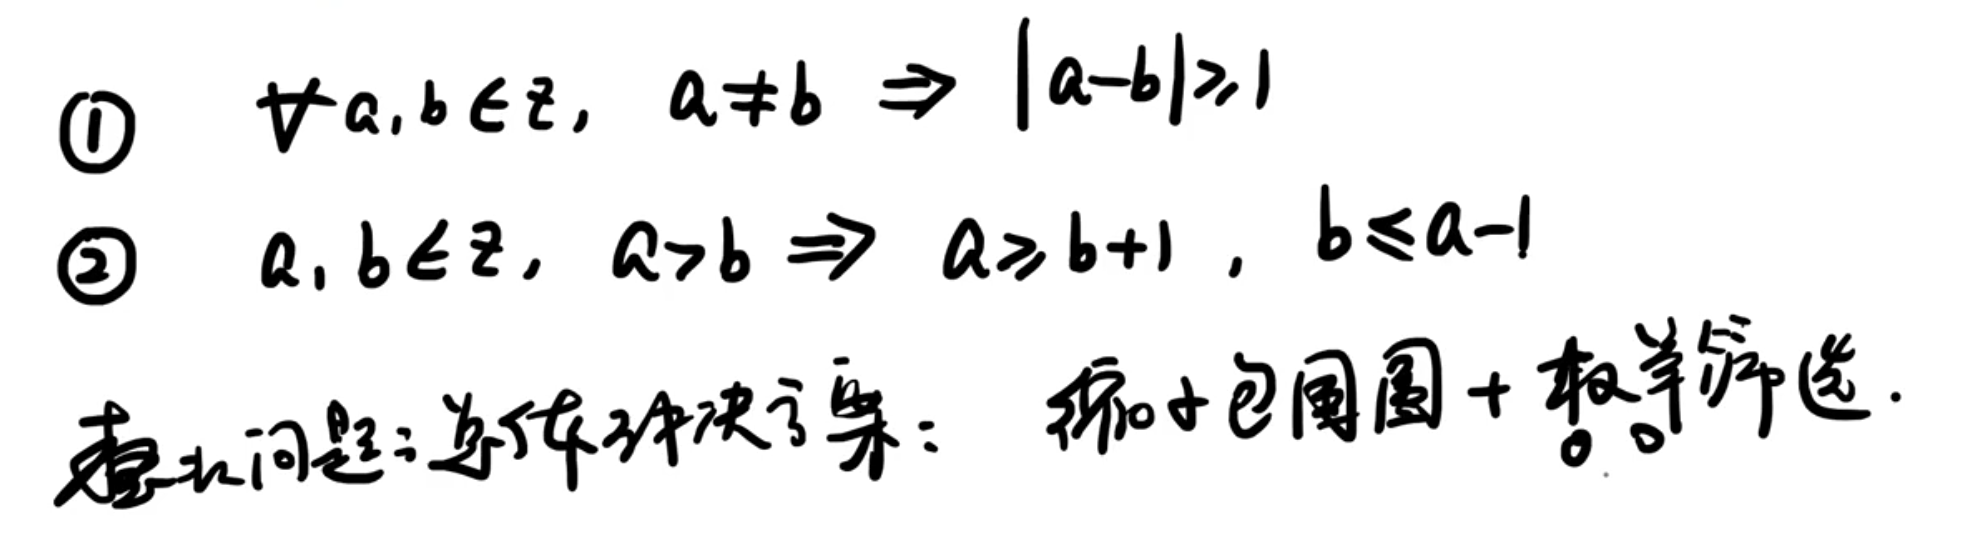 ① ∀a,b∈Z, a≠b ⇒ |a-b|≥1
② a,b∈Z, a>b ⇒ a≥b+1, b≤a-1
问题:总体解决方案: 缩小包围圈+枚举筛选.